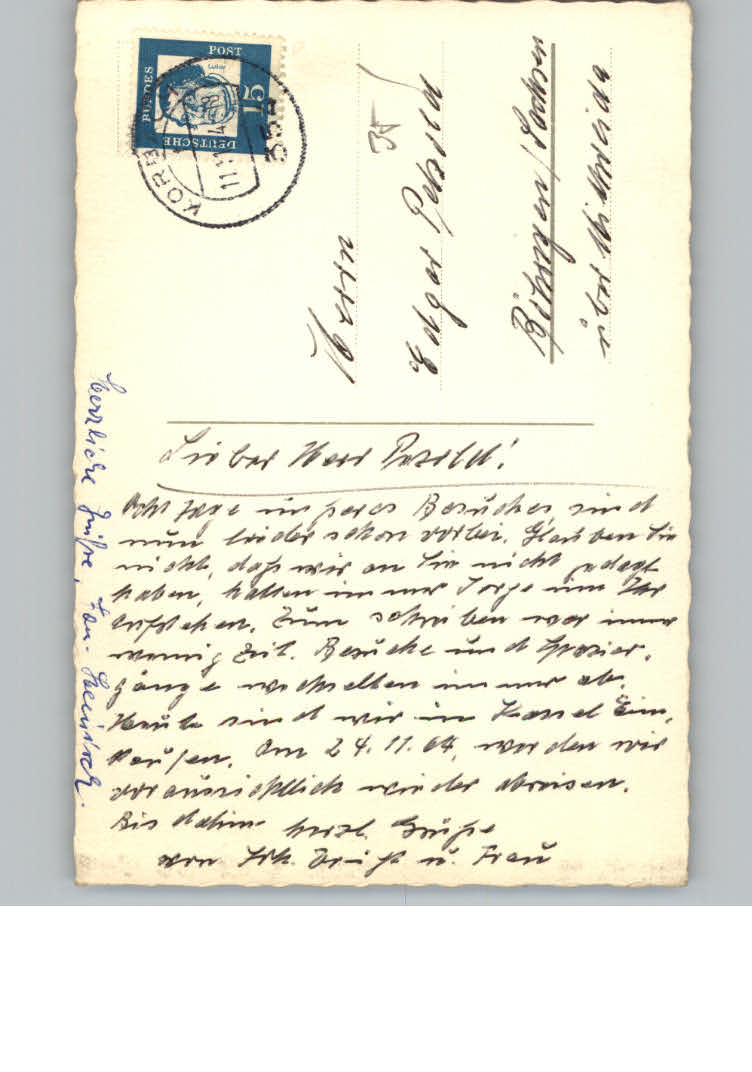 DEUTSCHE
BUNDES
POST
Luther
15
KORBACH
11.11.64
Herrn
Edgar Petzold
35
Böhrigen/Sachsen
über Mittweida
Lieber Herr Petzold!
Acht Tage unseres Besuches sind
nun leider schon vorbei. Glauben Sie
nicht, daß wir an Sie nicht gedagt
haben, hatten immer Sorge um Ihr
Aufstehen. Zum schreiben war immer
wenig Zeit. Besuche und Spazier-
gänge wechselten immer ab.
Heute sind wir in Kassel Ein-
kaufen. Am 24.11.64 werden wir
voraussichtlich wieder abreisen.
Bis dahin herzl. Grüße
von u. Frau
Herzliche Grüße, Fam.